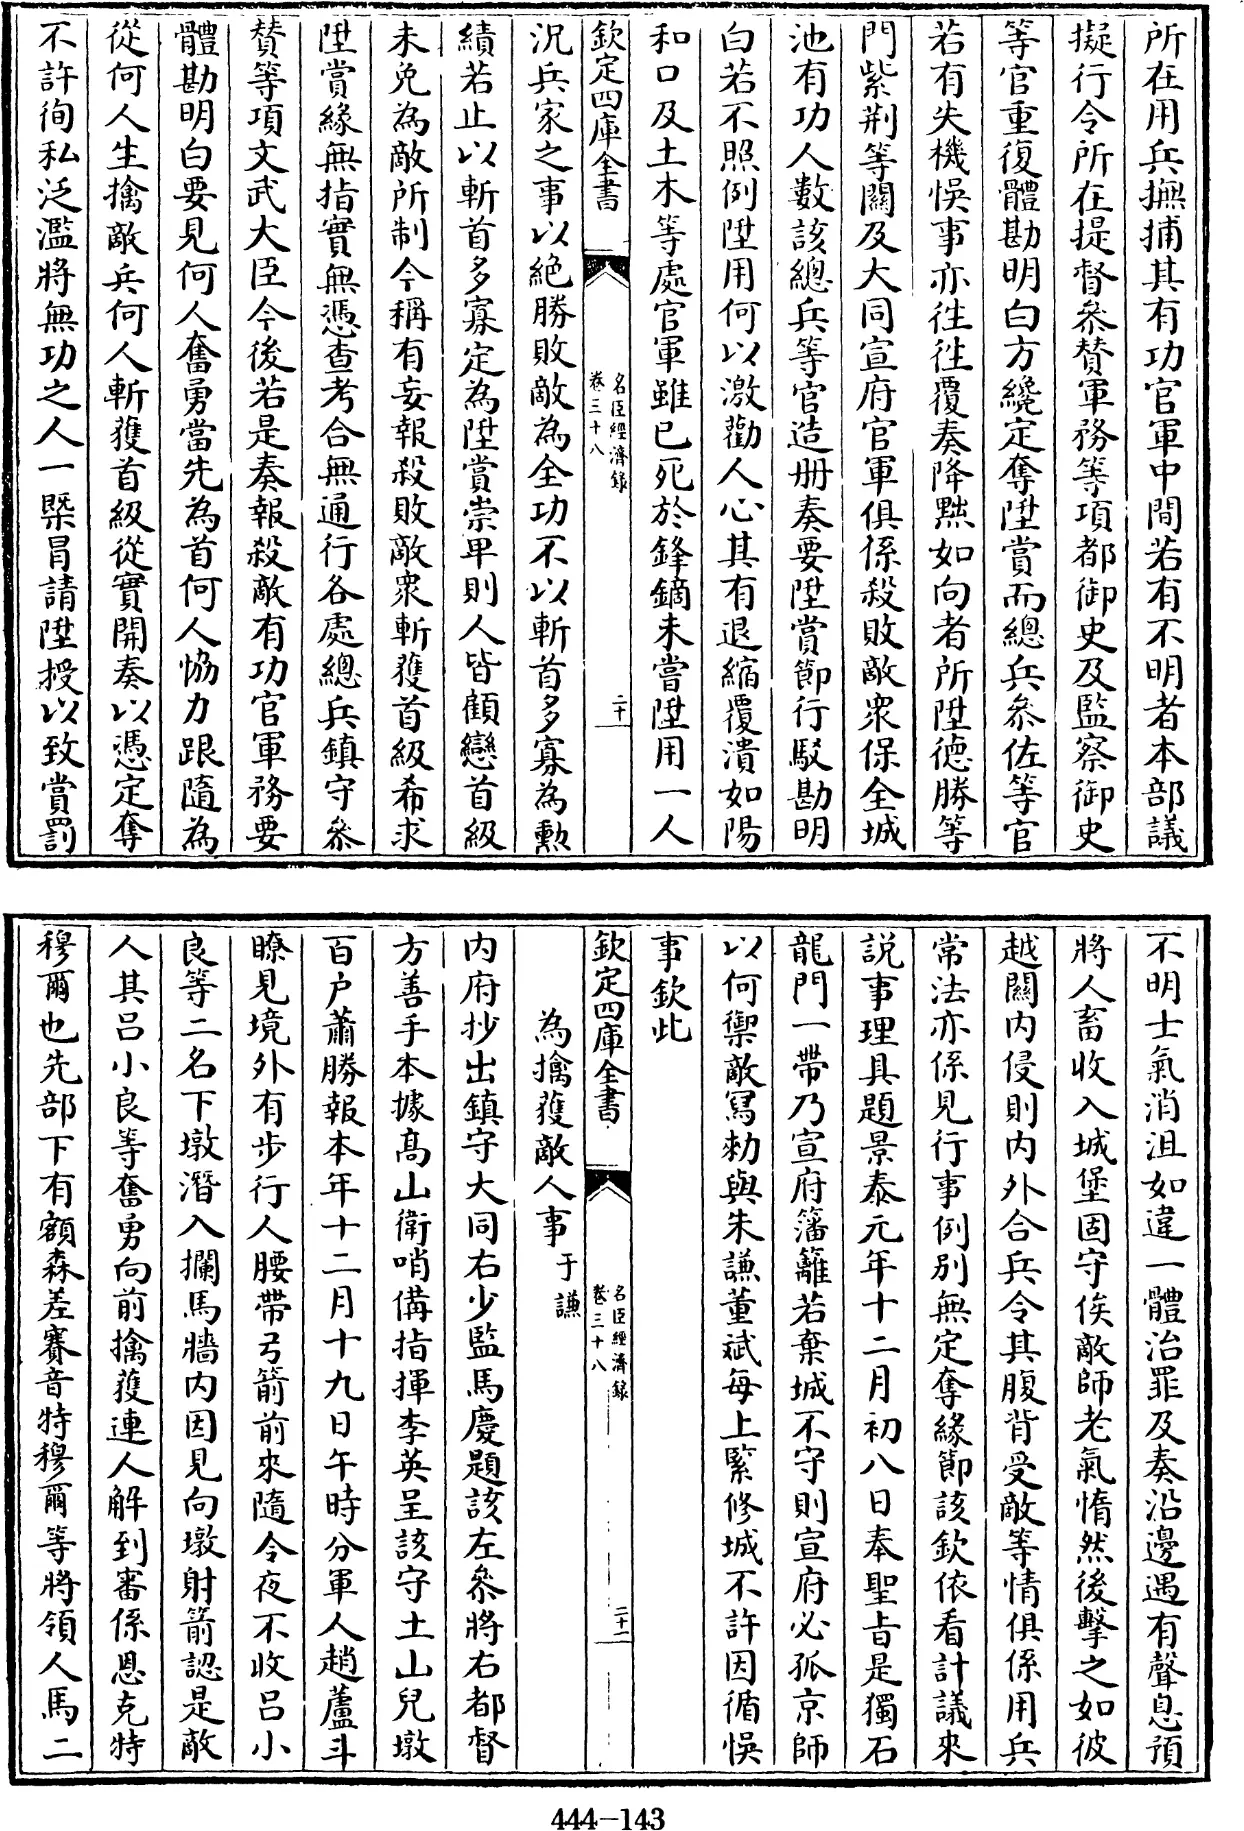 所在用兵撫捕其有功官軍中間若有不明者本部議
擬行令所在提督叅賛軍務等項都御史及監察御史
等官重復體勘明白方纔定奪陞賞而總兵叅佐等官
若有失機悮事亦徃徃覆奏降黜如向者所陞德勝等
門紫荆等關及大同宣府官軍俱係殺敗敵衆保全城
池有功人數該總兵等官造册奏要陞賞節行駁勘明
白若不照例陞用何以激勸人心其有退縮覆潰如陽
和口及土木等處官軍雖已死於鋒鏑未嘗陞用一人
欽定四庫全書
名臣經濟録
卷三十八
二十
況兵家之事以絶勝敗敵為全功不以斬首多寡為勲
績若止以斬首多寡定為陞賞崇卑則人皆顧戀首級
未免為敵所制今稱有妄報殺敗敵衆斬獲首級希求
陞賞緣無指實無憑查考合無通行各處總兵鎮守叅
賛等項文武大臣今後若是奏報殺敵有功官軍務要
體勘明白要見何人奮勇當先為首何人恊力跟隨為
從何人生擒敵兵何人斬獲首級從實開奏以憑定奪
不許徇私泛濫將無功之人一槩冐請陞授以致賞罰
不明士氣消沮如違一體治罪及奏沿邊遇有聲息預
將人畜收入城堡固守俟敵師老氣惰然後擊之如彼
越關内侵則内外合兵令其腹背受敵等情俱係用兵
常法亦係見行事例别無定奪緣節該欽依看計議來
説事理具題景泰元年十二月初八日奉聖旨是獨石
龍門一帶乃宣府籓籬若棄城不守則宣府必孤京師
以何禦敵寫勑與朱謙董斌每上緊修城不許因循悮
事欽此
欽定四庫全書
名臣經濟録
卷三十八
二十一
為擒獲敵人事 于謙
内府抄出鎮守大同右少監馬慶題該左叅將右都督
方善手本據髙山衛哨備指揮李英呈該守土山兒墩
百户蕭勝報本年十二月十九日午時分軍人趙蘆斗
瞭見境外有步行人腰帶弓箭前來隨令夜不收吕小
良等二名下墩潛入攔馬墻内因見向墩射箭認是敵
人其吕小良等奮勇向前擒獲連人解到審係恩克特
穆爾也先部下有額森差賽音特穆爾等將領人馬二
444-143